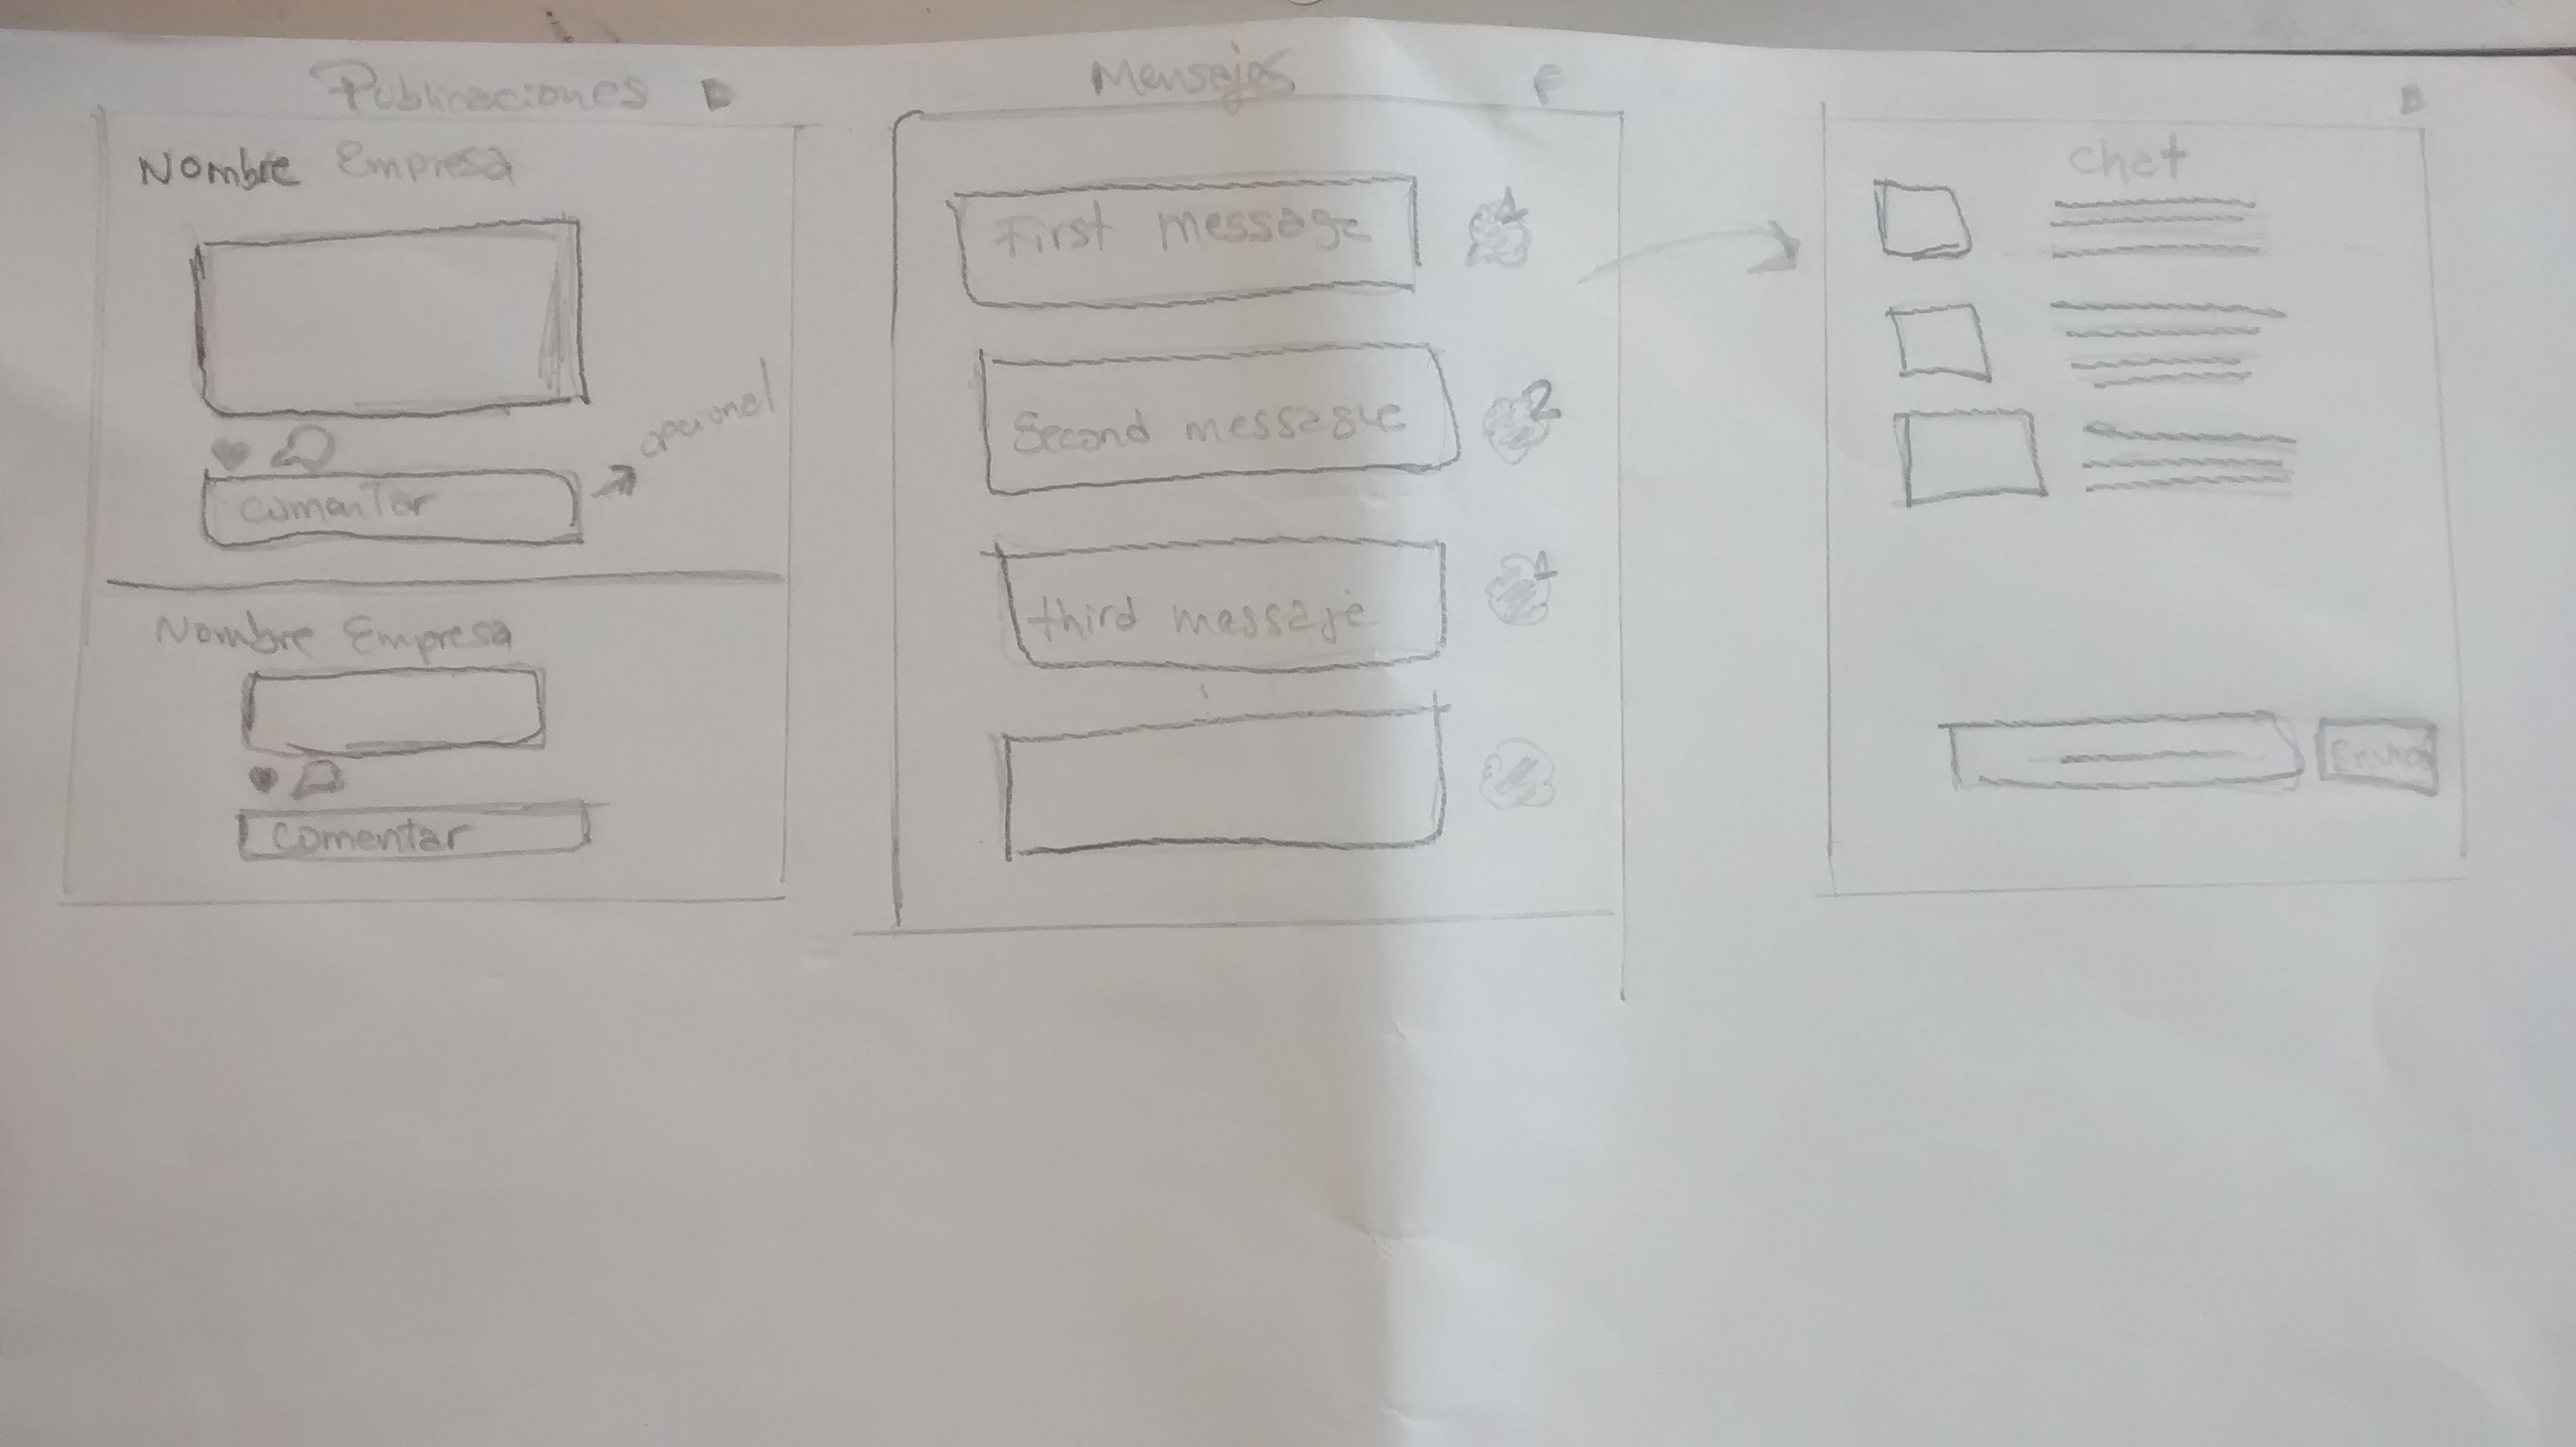 Publicaciones D
Nombre Empresa
comentar
opcional
Nombre Empresa
comentar
Mensajes F
First message 1
Second message 2
third messaje 1
D
chat